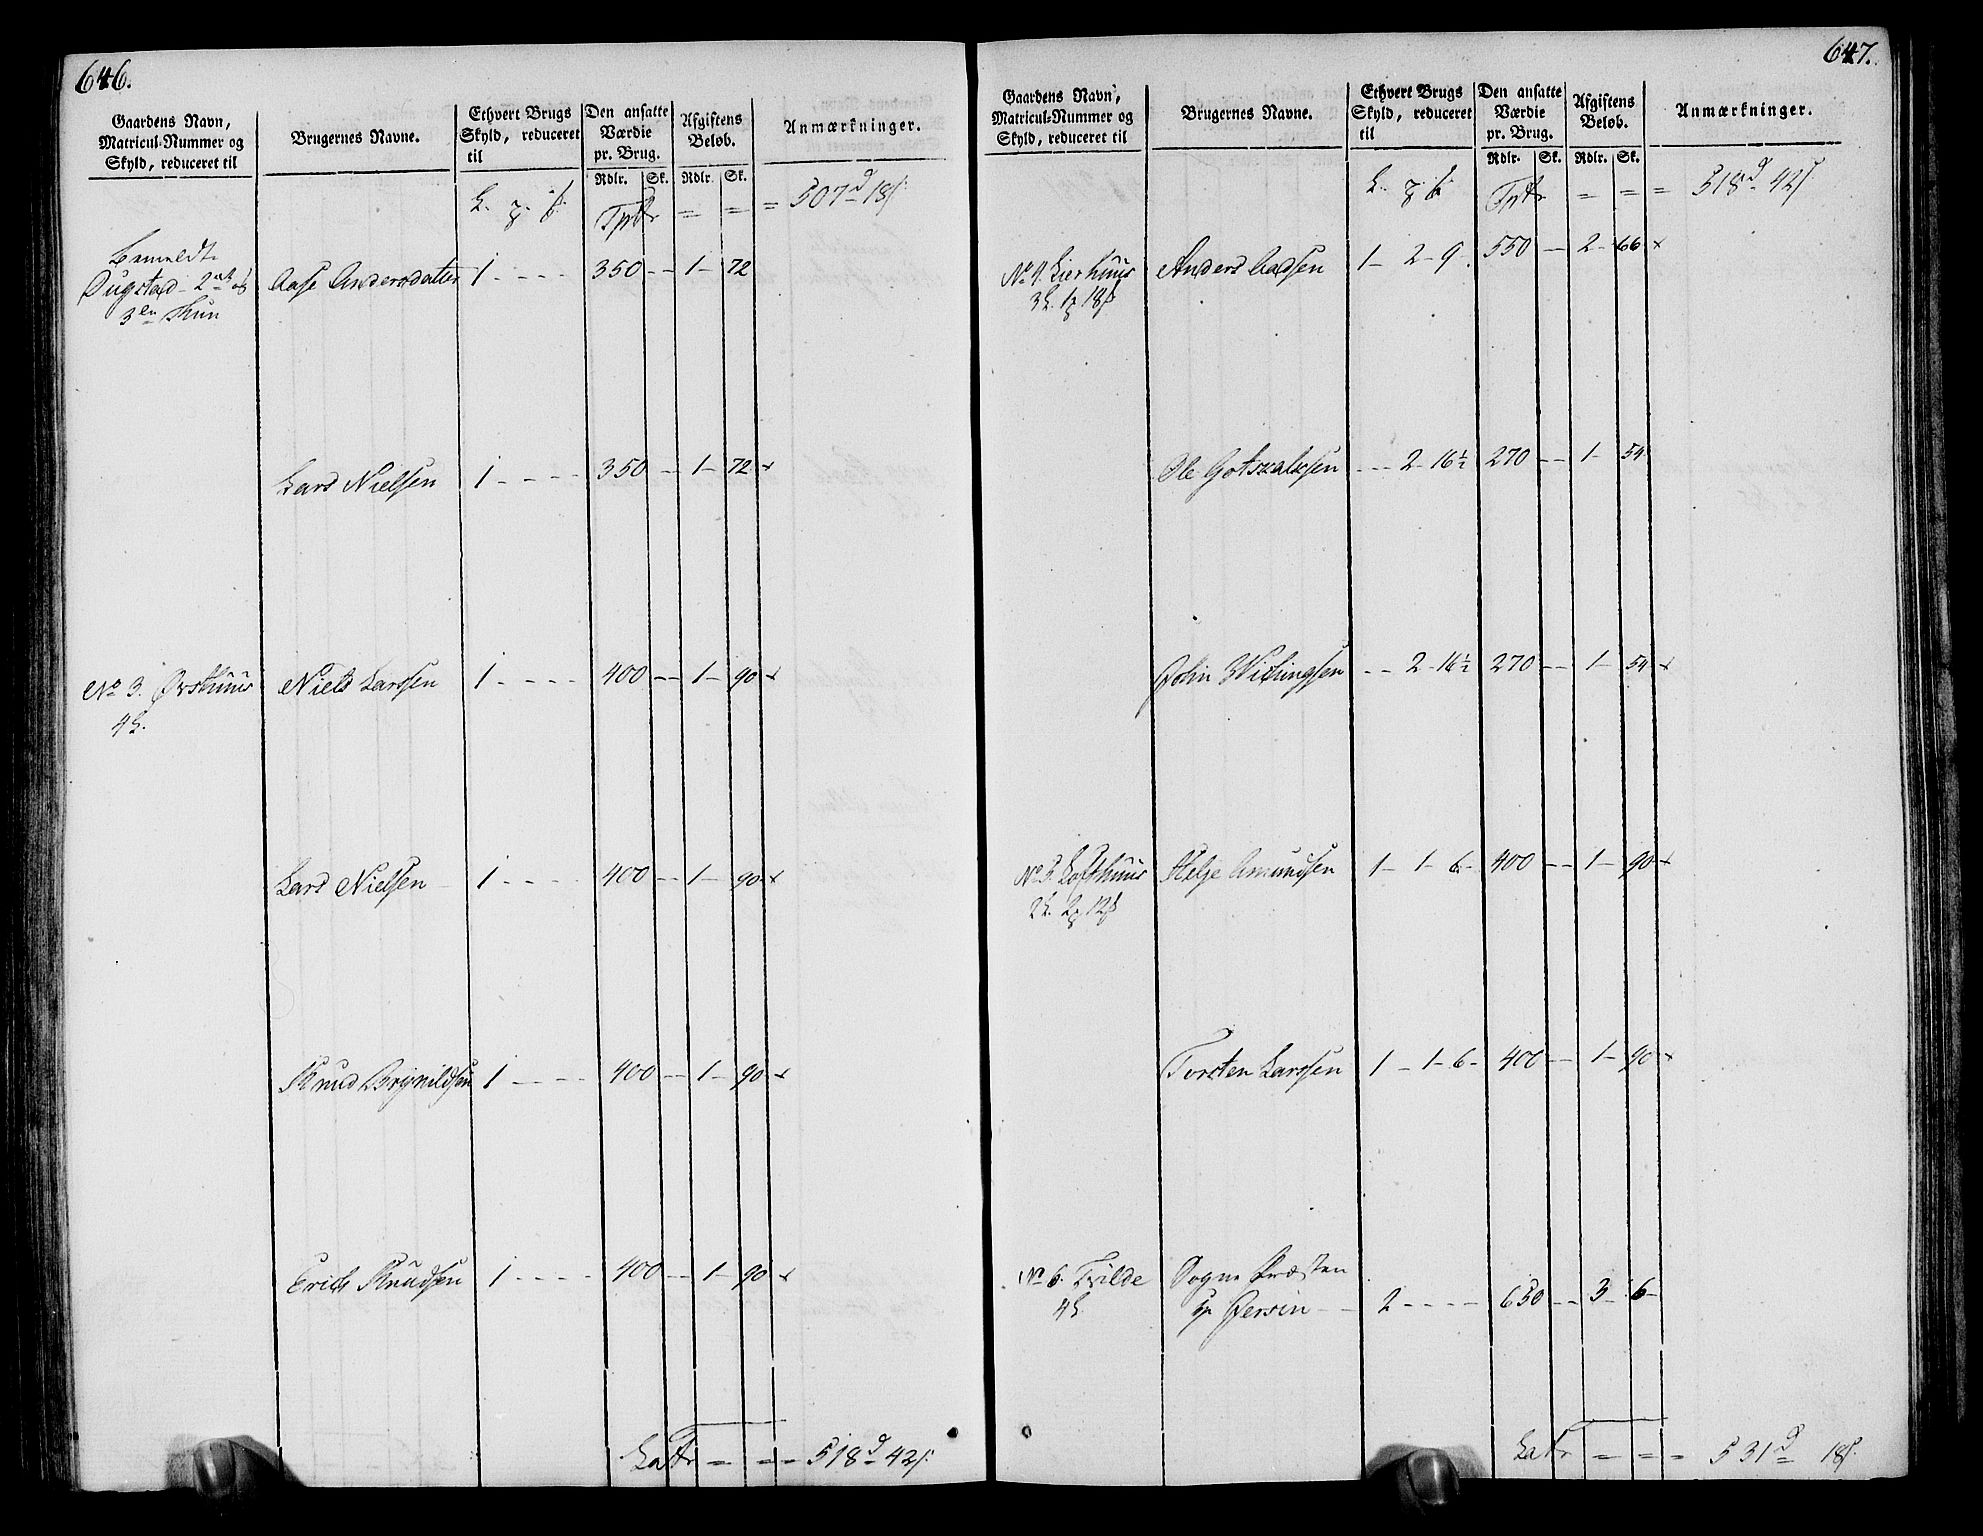 646.
Gaardens Navn, Matricul-Nummer og Skyld, reduceret til | Brugernes Navne. | Ethvert Brugs Skyld, reduceret til | Den ansatte Værdie pr. Brug. Rdlr. Sk. | Afgiftens Beløb. Rdlr. Sk. | Anmærkninger.
Tptr = = = 507 d 18 s.
Bemeldte
Dugstad 2 3 en Aase Andersdatter 1 - - - - 350 -- 1 - 72
Lars Nielsen 1 - - - - 350 -- 1 - 72 x
No 3. Ørsthuus Niels Larssen 1 - - - - 400 -- 1 - 90 x
4 L.
Lars Nielsen 1 - - - - 400 -- 1 - 90 x
Knud Brynildsen 1 - - - - 400 -- 1 - 90 x
Erich Knudsen 1 - - - - 400 -- 1 - 90 x
Latr = = = 518 d 42 s.
647.
Gaardens Navn, Matricul-Nummer og Skyld, reduceret til | Brugernes Navne. | Ethvert Brugs Skyld, reduceret til | Den ansatte Værdie pr. Brug. Rdlr. Sk. | Afgiftens Beløb. Rdlr. Sk. | Anmærkninger.
Tptr = = = 518 d 42 s
No 4. Lierhuus Anders 1 - 2 - 9. 550 -- 2 - 66 x
3 L. 1 18
Ole Gotskalksen - - - 2 - 16 1/2 270 -- 1 - 54
John Wikingsen - - 2 - 16 1/2 270 -- 1 - 54 x
No 5. Lofthuus Helje Amundsen 1 - 1 - 6 - 400 -- 1 - 90 x
2 L. 2 12
Torsten Larssen 1 - 1 - 6 - 400 -- 1 - 90 x
No 6. Tvilde Sogne Præsten
4 L. Hr Gerson 2 - - - - 650 -- 3 - 6 -
Latr = = = 531 d 18 s.